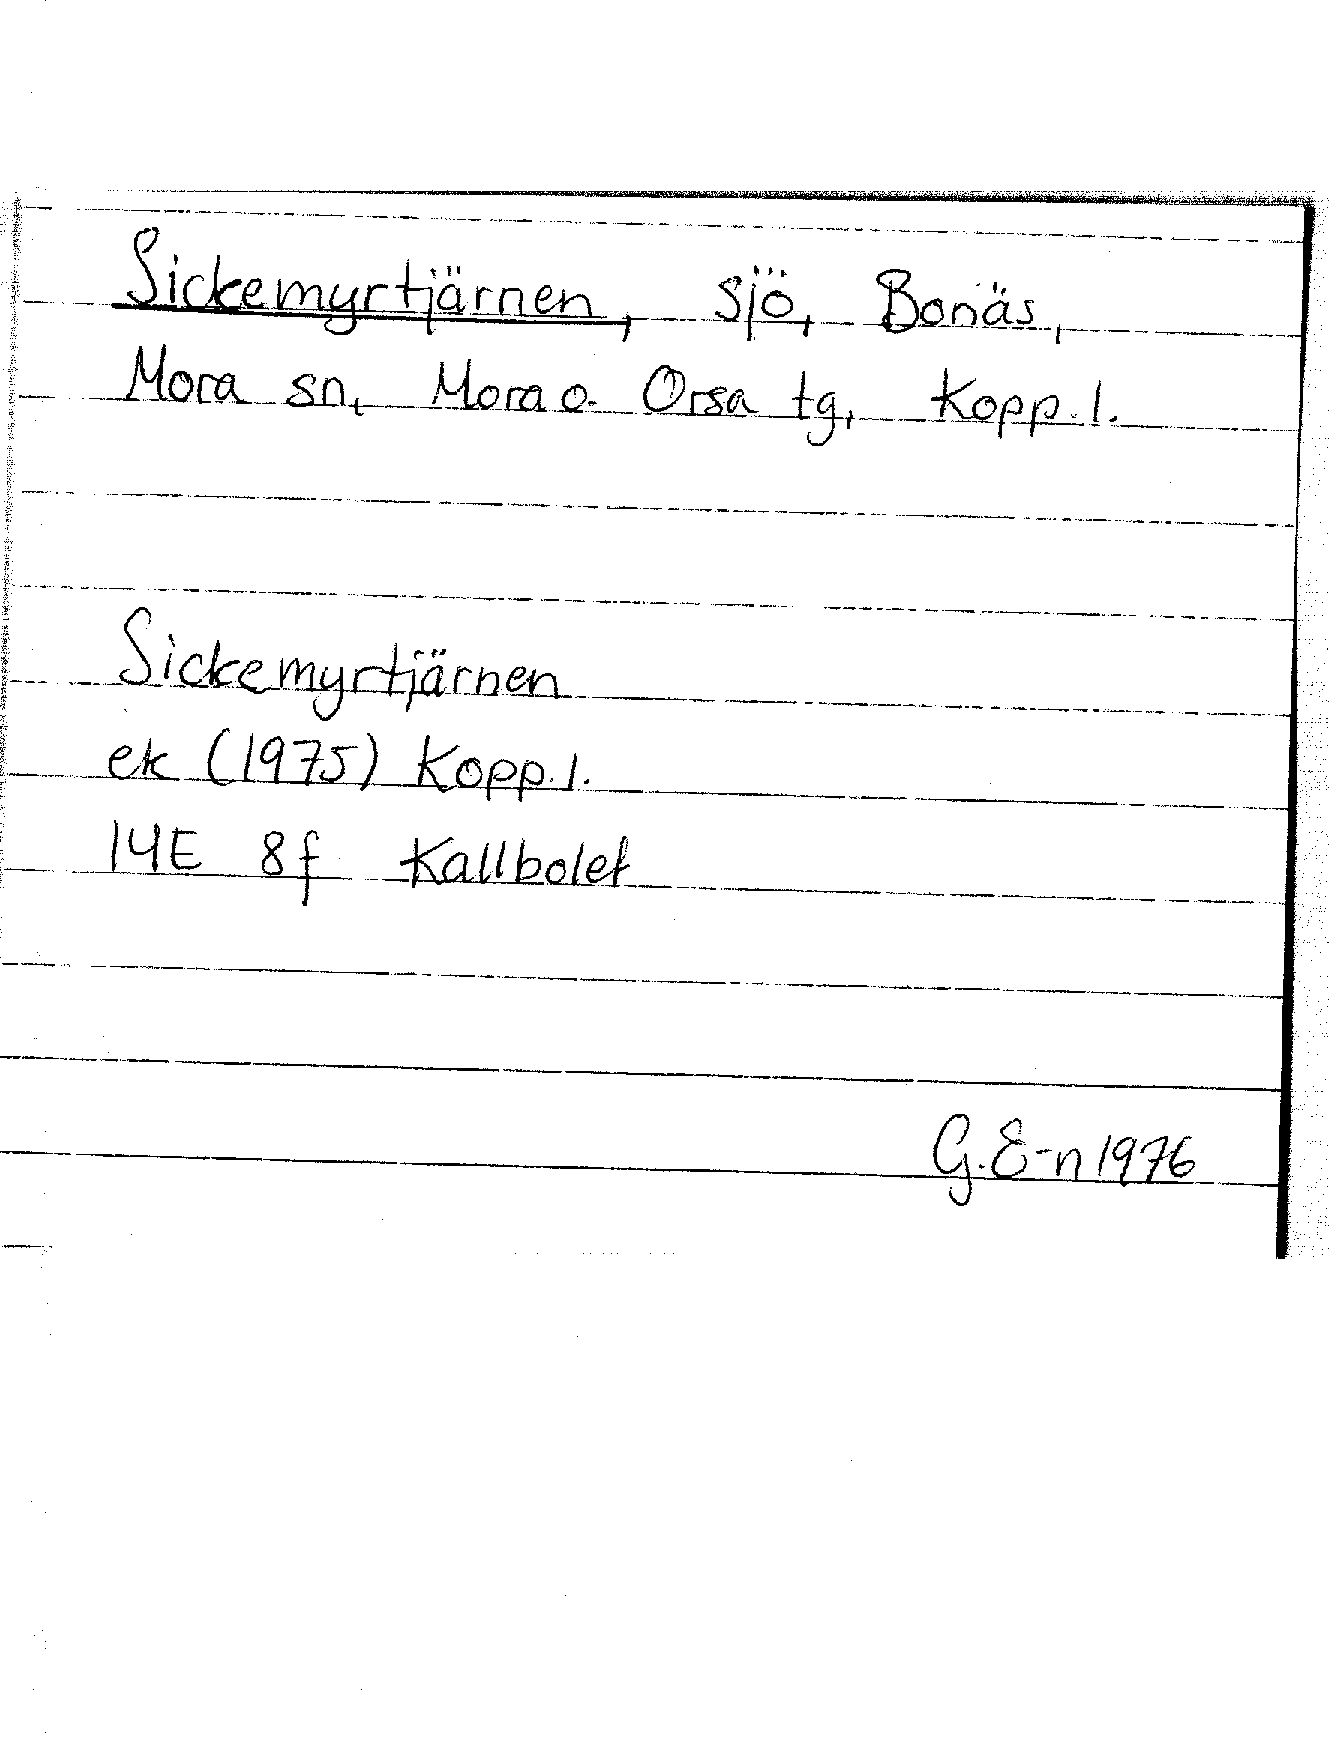 Sickemyrtjärnen, sjö, Bonäs,
Mora sn, Mora o. Orsa tg, Kopp. l.
Sickemyrtjärnen
ek (1975) Kopp. l.
14E 8f Kallbolet
G. E-n 1976